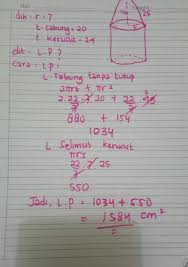 25
dik : r = 7
t tabung = 20
t kerucut = 24
dit : L. P ?
Cara : L. P =
L. Tabung tanpa tutup
2πrt + πr²
2. 22/7 . 7 . 20 + 22/7 . 49
880 + 154
1034
L. Selimut kerucut
πrs
22/7 . 7 . 25
550
Jadi, L. P = 1034 + 550
= 1584 cm²